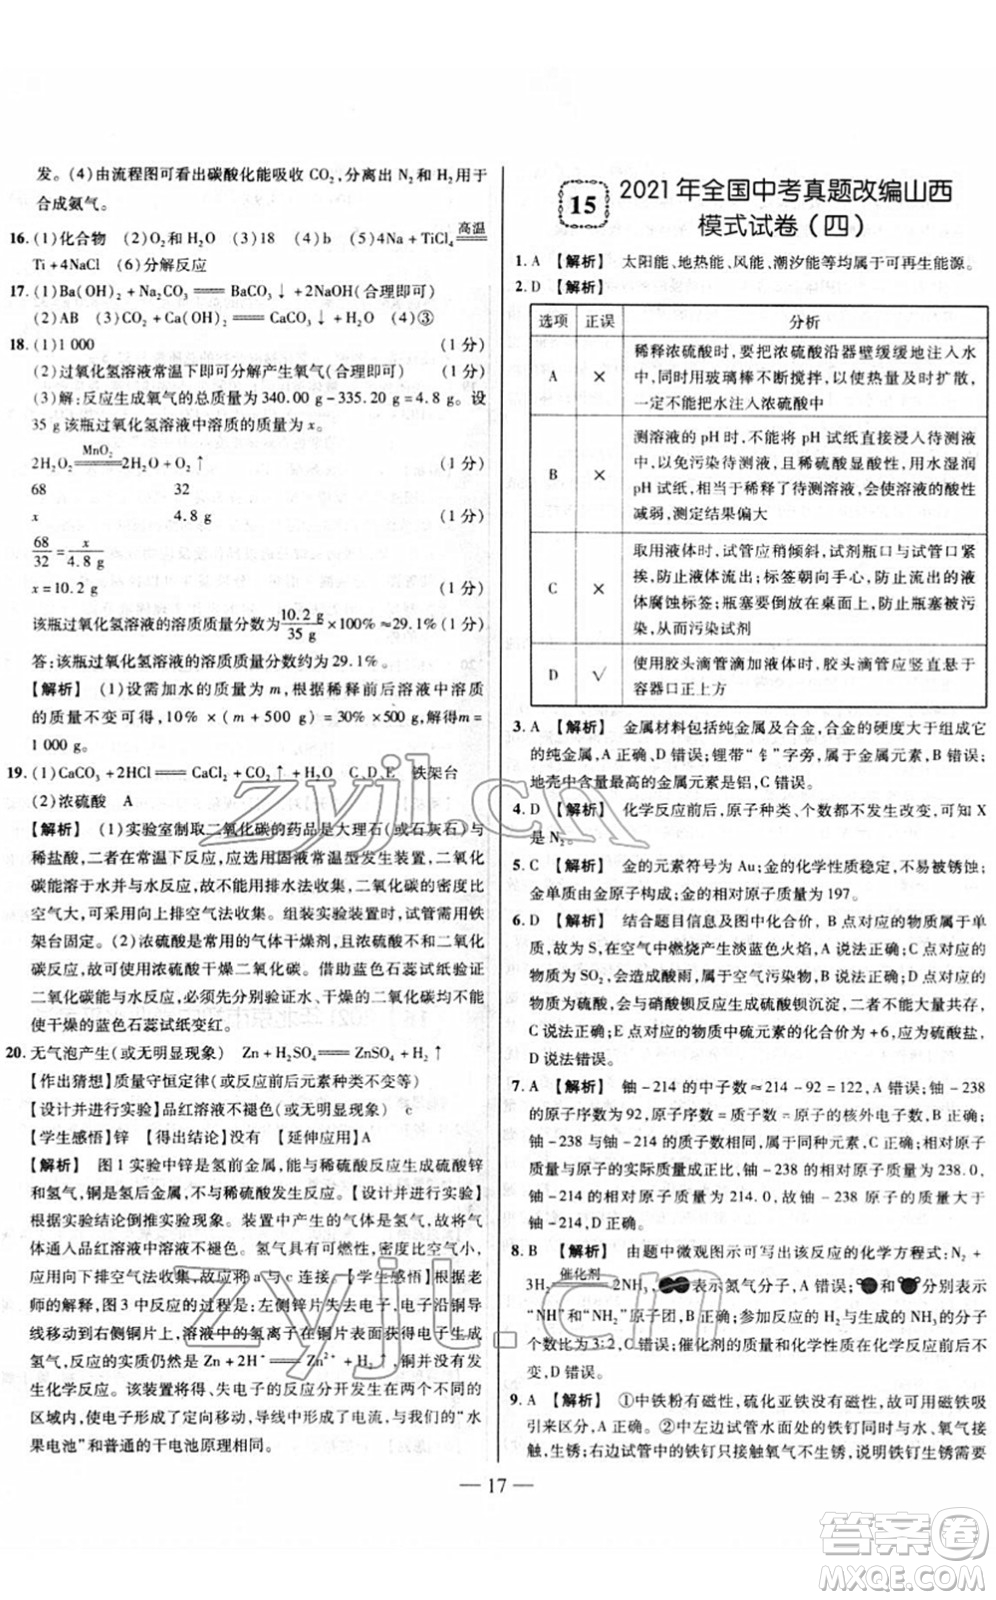 发。(4)由流程图可看出碳酸化能吸收 CO₂,分离出 N₂ 和 H₂ 用于
合成氨气。
16. (1)化合物 (2)O₂和 H₂O (3)18 (4)b (5)4Na + TiCl₄ ══高温══
Ti + 4NaCl (6)分解反应
17. (1)Ba(OH)₂ + Na₂CO₃ ══ BaCO₃↓ + 2NaOH(合理即可)
(2)AB (3)CO₂ + Ca(OH)₂ ══ CaCO₃↓ + H₂O (4)③
18. (1)1 000 (1 分)
(2)过氧化氢溶液常温下即可分解产生氧气(合理即可) (1 分)
(3)解:反应生成氧气的总质量为 340.00 g - 335.20 g = 4.8 g。设
35 g 该瓶过氧化氢溶液中溶质的质量为 x。
2H₂O₂ ══MnO₂══ 2H₂O + O₂↑ (1 分)
68 32
x 4.8 g (1 分)
68/32 = x/4.8 g
x = 10.2 g (1 分)
该瓶过氧化氢溶液的溶质质量分数为 10.2 g/35 g × 100% ≈ 29.1% (1 分)
答:该瓶过氧化氢溶液的溶质质量分数约为 29.1%。
【解析】 (1)设需加水的质量为 m,根据稀释前后溶液中溶质的
质量不变可得,10% × (m + 500 g) = 30% × 500 g,解得 m =
1 000 g。
19. (1)CaCO₃ + 2HCl ══ CaCl₂ + CO₂↑ + H₂O C、D、E 铁架台
(2)浓硫酸 A
【解析】 (1)实验室制取二氧化碳的药品是大理石(或石灰石)与
稀盐酸,二者在常温下反应,应选用固液常温型发生装置,二氧化
碳能溶于水并与水反应,必须用排空气法收集,二氧化碳的密度比
空气大,可采用向上排空气法收集。组装实验装置时,试管需用铁
架台固定。(2)浓硫酸是常用的气体干燥剂,且其与二氧化
碳不反应,所以选用浓硫酸干燥二氧化碳。借助蓝色石蕊试纸验证
二氧化碳能与水反应,必须先分别验证水、干燥的二氧化碳都不
能使干燥的蓝色石蕊试纸变红。
20. 无气泡产生(或无明显现象) Zn + H₂SO₄ ══ ZnSO₄ + H₂↑
【作出猜想】质量守恒定律(或反应前后元素种类不变等)
【设计并进行实验】品红溶液不褪色(或无明显现象) c
【学生感悟】锌 【得出结论】有 【延伸应用】A
【解析】 图 1 实验中锌是氢前金属,能与稀硫酸反应生成硫酸锌
和氢气,铜是氢后金属,不与稀硫酸发生反应。【设计并进行实验】
根据实验结论倒推实验现象。装置中产生的气体是氢气,故将
气体通入品红溶液中溶液不褪色。氢气具有可燃性,密度比空气
小,应用向下排空气法收集,故应将 a 与 c 连接。【学生感悟】根据老
师的解释,图 3 中反应的过程是:左侧锌片失去电子,电子沿铜导
线移动到右侧铜片上,溶液中的氢离子在铜片表面获得电子生成
氢气,反应的实质仍然是 Zn + 2H⁺ ══ Zn²⁺ + H₂↑,铜并没有参与
反应。该装置将得、失电子的反应分开发生在两个不同的区
域,促使电子发生了定向移动,导线中形成了电流,与我们的“水
果电池”和普通的干电池原理相同。
15 2021 年全国中考真题改编山西
模式试卷(四)
1. A 【解析】 太阳能、地热能、风能、潮汐能等均属于可再生能源。
2. D 【解析】
选项 正误 分析
A × 稀释浓硫酸时,要把浓硫酸沿器壁缓缓地注入水
中,同时用玻璃棒不断搅拌,以使热量及时扩散,
一定不能把水注入浓硫酸中
B × 测溶液的 pH 时,不能将 pH 试纸直接浸入待测液
中,以免污染待测液,且稀硫酸显酸性,用水湿润
pH 试纸,相当于稀释了待测溶液,会使溶液的酸性
减弱,测定结果偏大
C × 取用液体时,试管应稍倾斜,试剂瓶口与试管口紧
挨,防止液体流出;标签朝向手心,防止流出的液
体腐蚀标签;瓶塞要倒放在桌面上,防止瓶塞被污
染,从而污染试剂
D √ 使用胶头滴管滴加液体时,胶头滴管应竖直悬于
容器口正上方
3. A 【解析】 金属材料包括纯金属及合金,合金的硬度大于组成它
的纯金属,A 正确,D 错误;锂带“钅”字旁,属于金属元素,B 错误;
地壳中含量最高的金属元素是铝,C 错误。
4. D 【解析】 化学反应前后,原子种类、个数都不发生改变,可知 X
是 N₂。
5. C 【解析】 金的元素符号为 Au;金的化学性质稳定,不易被锈蚀;
金单质由金原子构成;金的相对原子质量为 197。
6. D 【解析】 结合题目信息及图中化合价,B 点对应的物质属于单
质,故为 S,在空气中燃烧产生淡蓝色火焰,A 说法正确;C 点对应的
物质为 SO₂,会形成酸雨,属于空气污染物,B 说法正确;D 点对应的
物质为硫酸,会与钡离子结合生成硫酸钡沉淀,二者不能大量共存,
C 说法正确;E 点对应的物质中硫元素的化合价为 +6,应为硫酸盐,
D 说法错误。
7. A 【解析】 铀-214 的中子数 ≈ 214 - 92 = 122,A 错误;铀-238
的原子序数为 92,原子序数 = 质子数 = 原子的核外电子数,B 正确;
铀-238 与铀-214 的质子数相同,均属于铀元素,C 正确;由于相对
原子的实际质量之比等于相对原子质量之比,铀-238 的相对原子质量为 238.0,
铀-214 的相对原子质量为 214.0,故铀-238 的质量大于
铀-214,D 正确。
8. B 【解析】 由题中微观图示可写出该反应的化学方程式:N₂ +
3H₂ ══催化剂══ 2NH₃,表示氮气分子,A 错误;和分别表示
“NH”和“NH₂”原子团,B 正确;参加反应的 H₂ 与生成的 NH₃ 的分子
个数比为 3:2,C 错误;催化剂的质量和化学性质在反应前后不变,
D 错误。
9. A 【解析】 ①中铁粉有磁性,硫化亚铁没有磁性,可以用磁铁吸
引来区分,A 正确。②中左边试管水面处的铁钉同时与水、氧气接
触,生锈;右边试管中的铁钉只接触氧气不生锈,说明铁钉生锈需要
— 17 —
zyjl.cn
zyjl.cn
答案圈
MXQE.COM